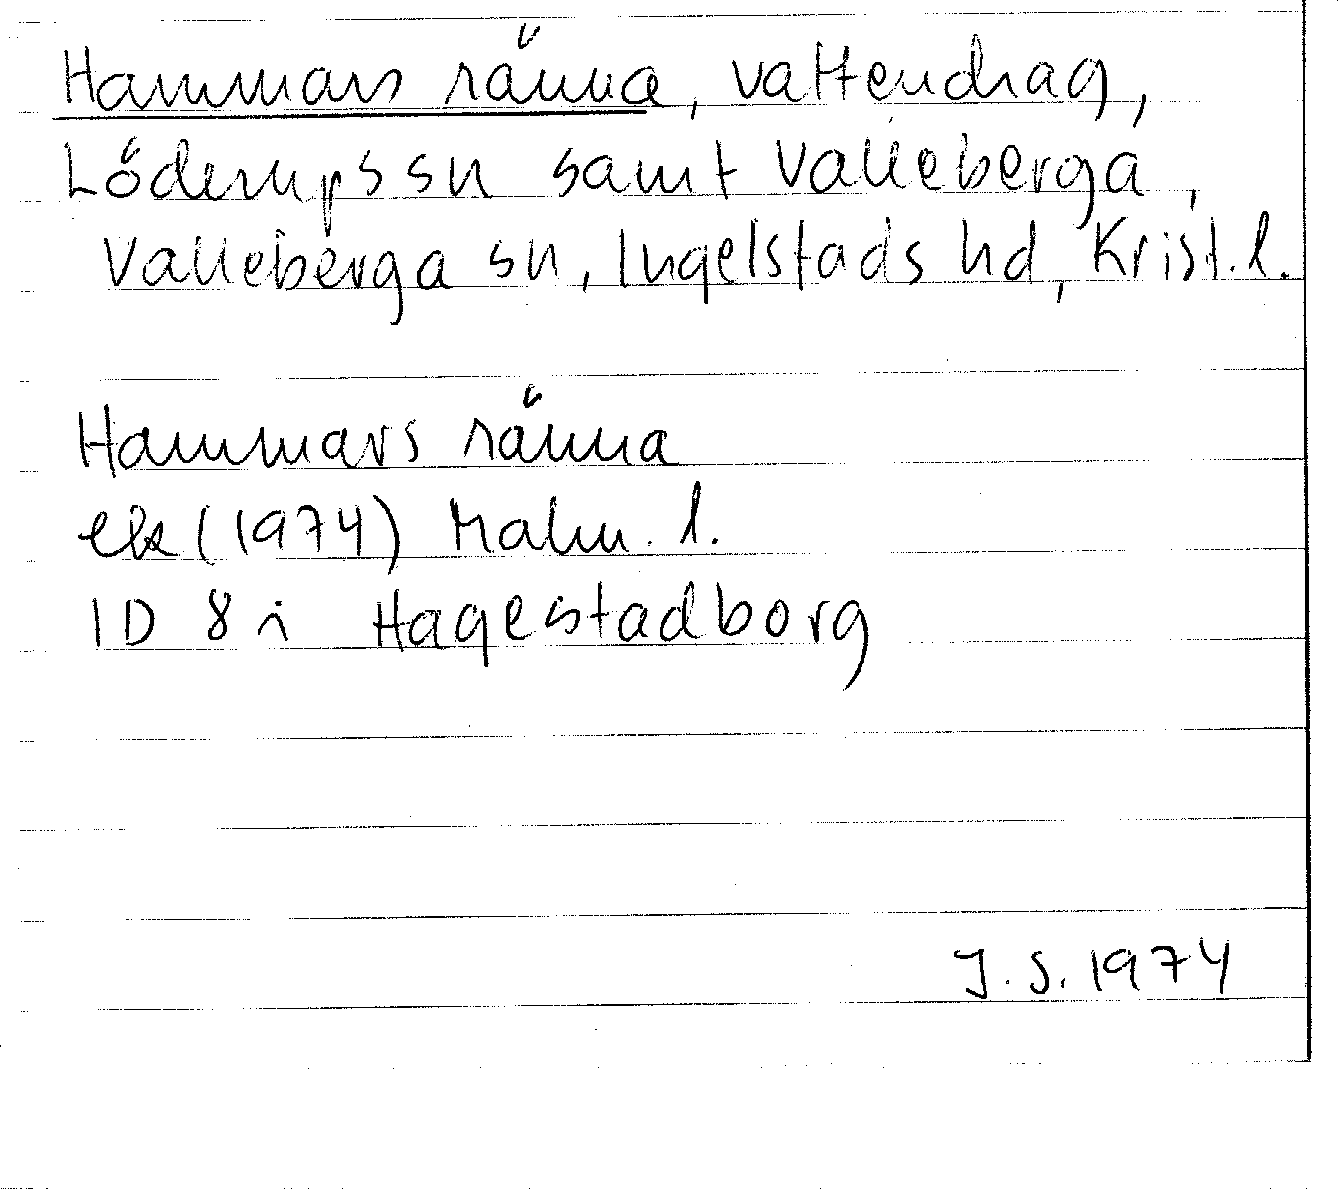 Hammars ränna, vattendrag,
Löderups sn samt Valleberga,
Valleberga sn, Ingelstads hd, Krist. l.
Hammars ränna
ek (1974) Malm. l.
1D 8i Hagestadborg
J. S. 1974